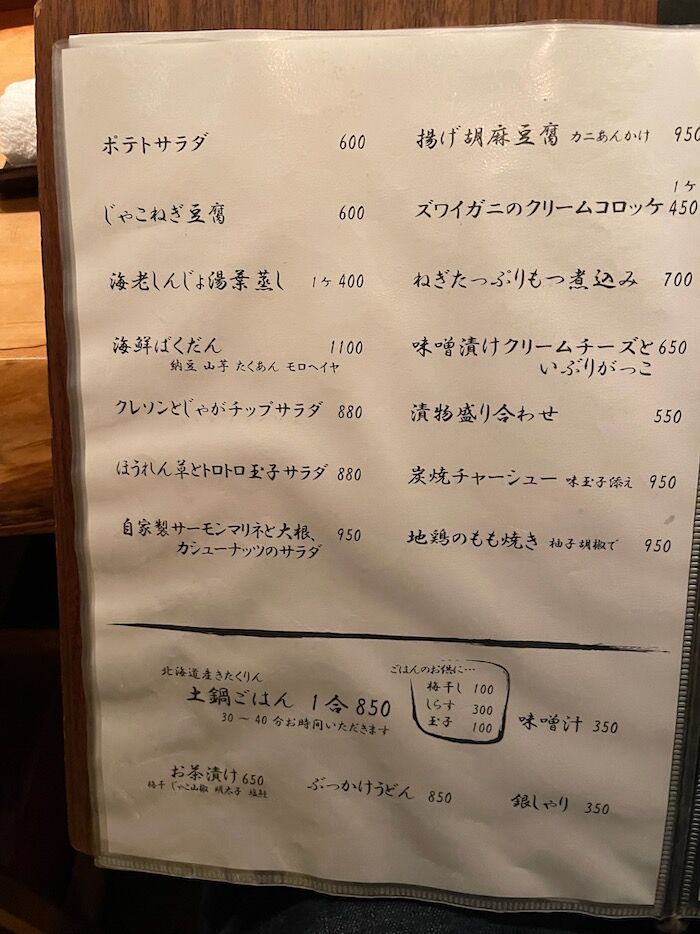 ポテトサラダ 600
じゃこねぎ豆腐 600
海老しんじょ湯葉蒸し 1ヶ 400
海鮮ばくだん 1100
納豆 山芋 たくあん モロヘイヤ
クレソンとじゃがチップサラダ 880
ほうれん草とトロトロ玉子サラダ 880
自家製サーモンマリネと大根、 950
カシューナッツのサラダ
揚げ胡麻豆腐 カニあんかけ 950
1ヶ
ズワイガニのクリームコロッケ 450
ねぎたっぷりもつ煮込み 700
味噌漬けクリームチーズと 650
いぶりがっこ
漬物盛り合わせ 550
炭焼チャーシュー 味玉子添え 950
地鶏のもも焼き 柚子胡椒で 950
北海道産きたくりん
土鍋ごはん 1合 850
30〜40分お時間いただきます
ごはんのお供に…
梅干し 100
しらす 300
玉子 100
味噌汁 350
お茶漬け 650
梅干 じゃこ山椒 明太子 塩鮭
ぶっかけうどん 850
銀しゃり 350